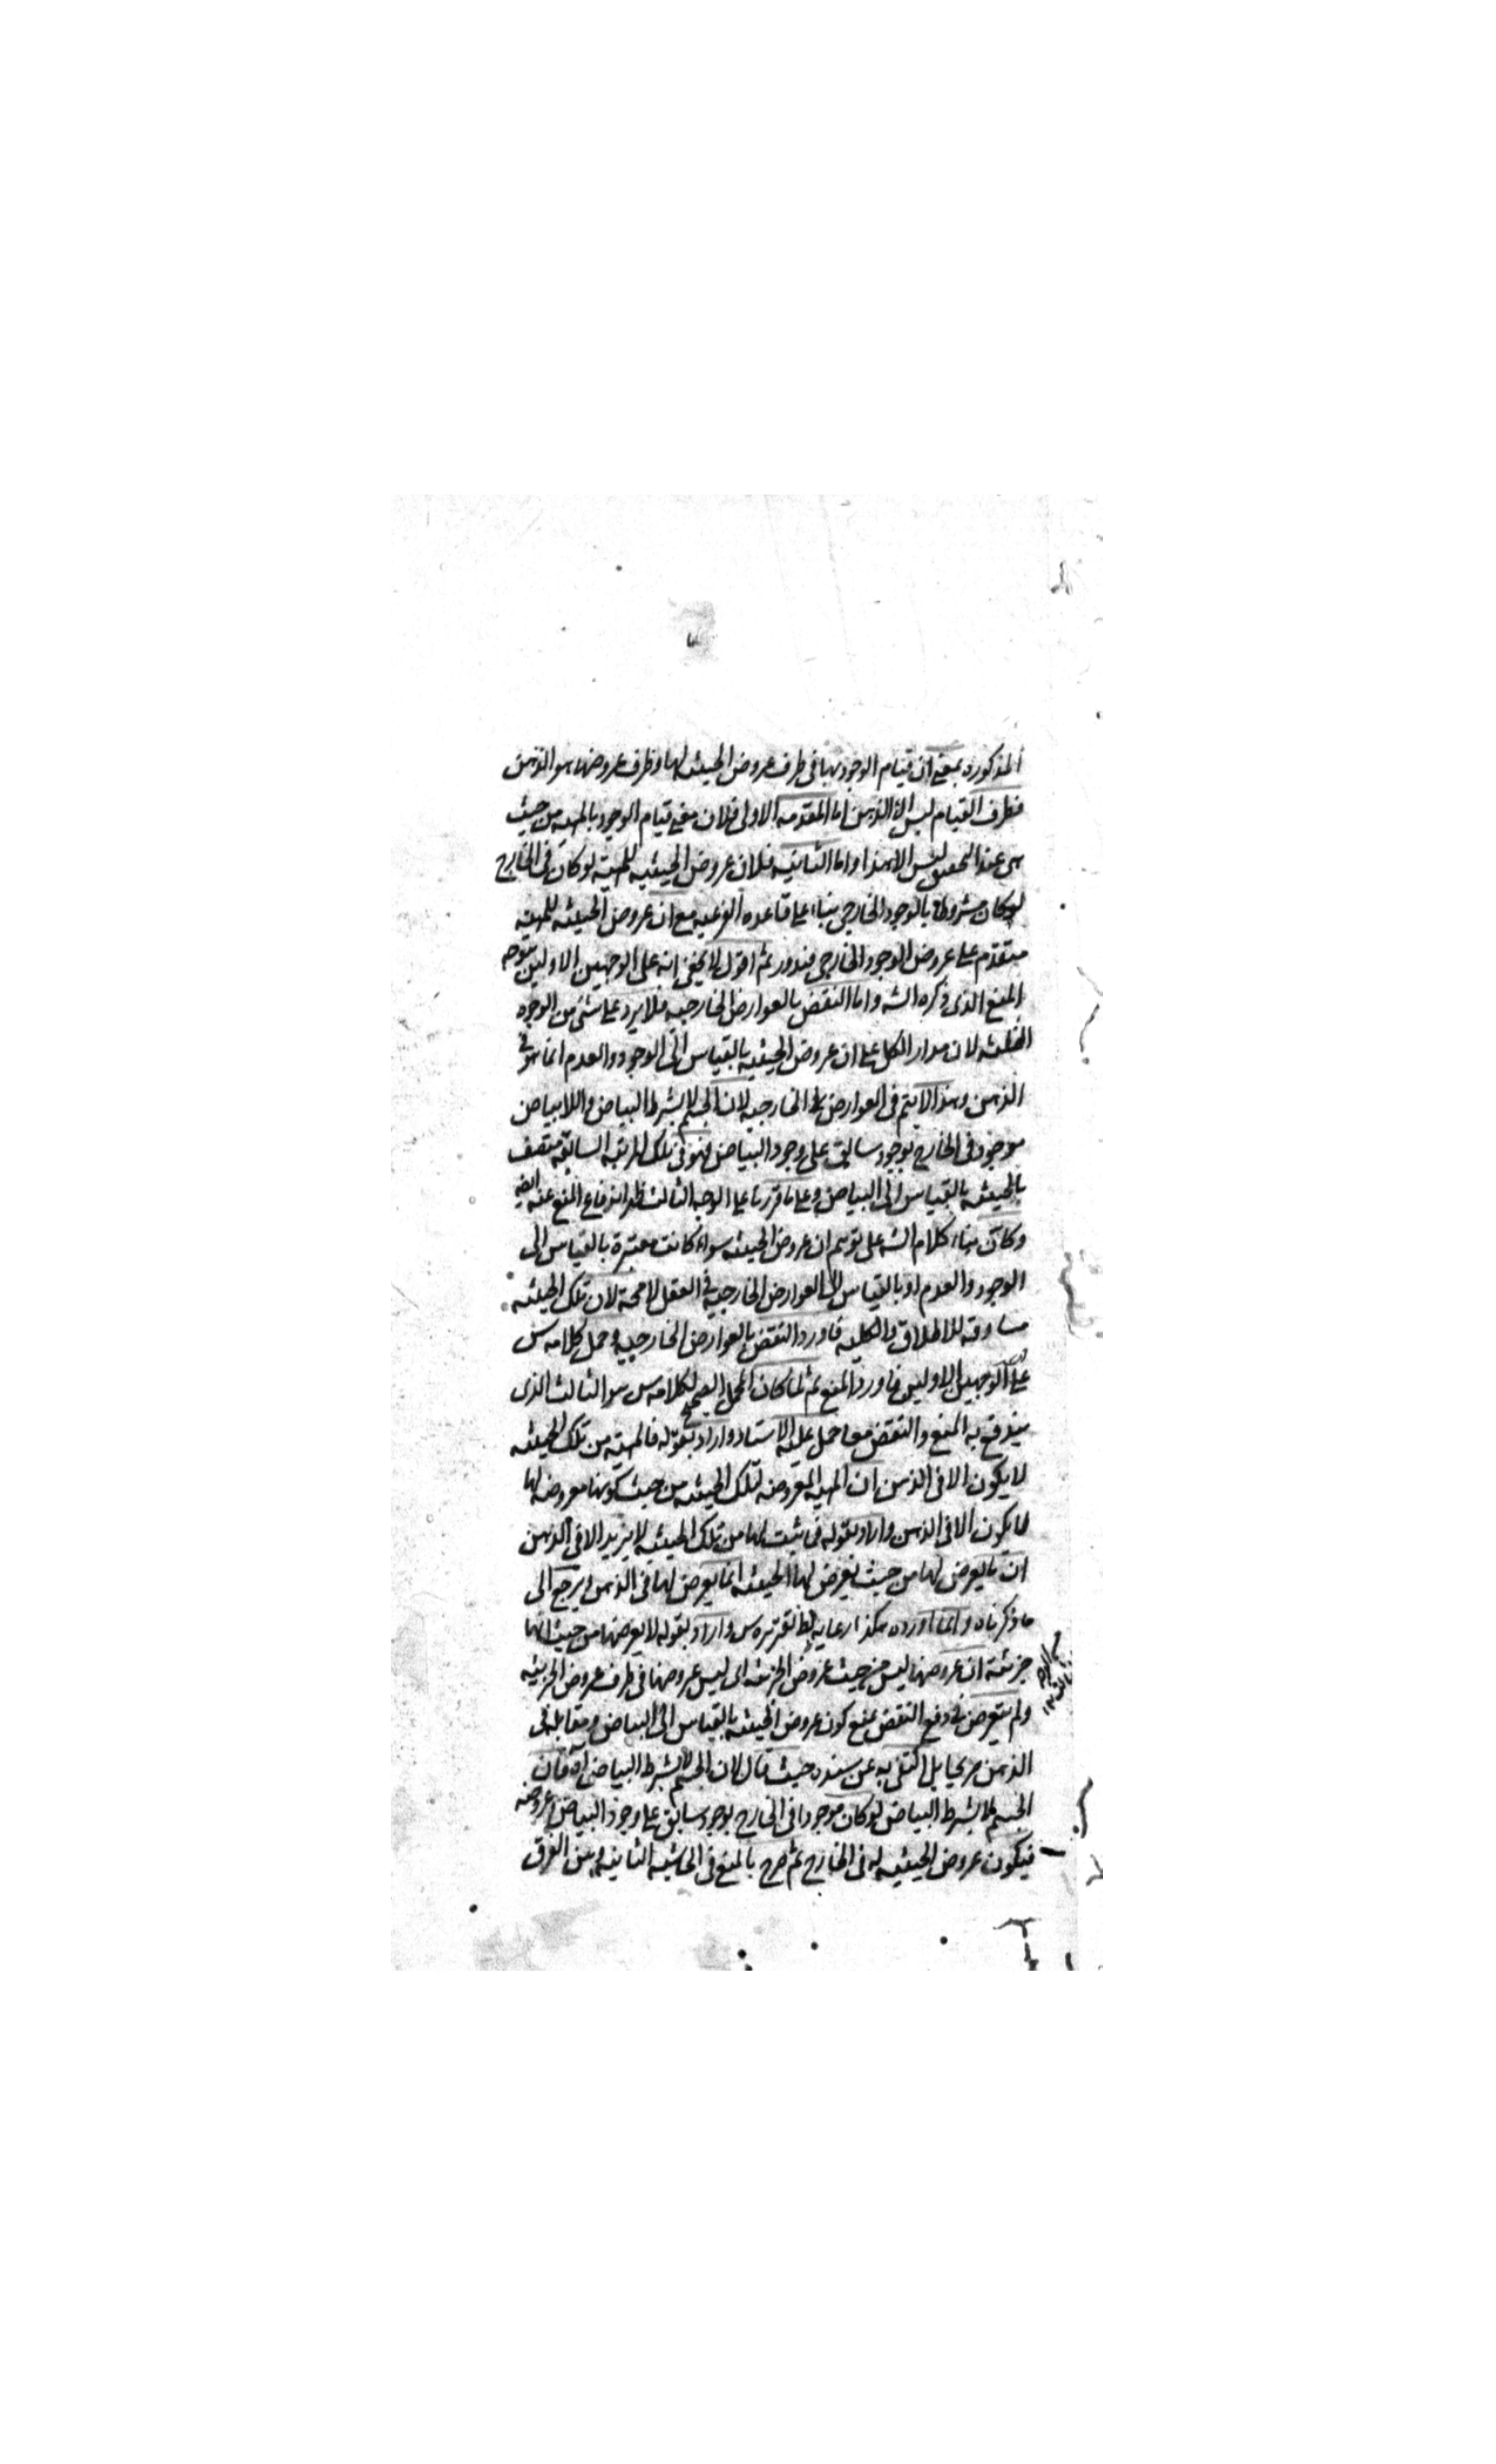 المذكورة بمعنى ان قيام الوجود بها فى ظرف عروض الحيثية لها وظرف عروضها هو الذهن
فظرف القيام ليس الا الذهن اما المقدمه الاولى فلان معنى قيام الوجود بالمهية من حيث
هى عند المحقق ليس الا هذا واما الثانيه فلان عروض الحيثيه للمهية لو كان فى الخارج
لكان مشروطا بالوجود الخارجى بناء على قاعده الفرعيه مع ان عروض الحيثيه للمهية
متقدم على عروض الوجود الخارجى فيدور ثم اقول لا يخفى انه على الوجهين الاولين يتوجه
المنع الذى ذكره الشه واما النقض بالعوارض الخارجيه فلا يرد على شئ من الوجوه
الثلثه لان مدار الكل على ان عروض الحيثيه بالقياس الى الوجود والعدم انما هو فى
الذهن وهذا لا يتم فى العوارض الخارجيه لان الجسم لا بشرط البياض واللابياض
موجود فى الخارج بوجود سابق على وجود البياض فهو فى تلك المرتبه السابقة متصف
بالحيثيه بالقياس الى البياض وعلى ما قررنا على الوجه الثالث ظهر اندفاع المنع عنه ايضه
وكان بناء كلام الشه على توهم ان عروض الحيثيه سواء كانت معتبرة بالقياس الى
الوجود والعدم او بالقياس الى العوارض الخارجية فى العقل لا محة لان تلك الحيثيه
مساوقه للاطلاق والكليه فاورد النقض بالعوارض الخارجيه وحمل كلامه س
على الوجهين الاولين فاورد المنع ثم لما كان المحمل الصحيح لكلامه س هو الثالث الذى
يندفع به المنع والنقض معا حمل عليه الاستاد واراد بقوله فالمهية من تلك الحيثيه
لا يكون الا فى الذهن ان المهيه المعروضه لتلك الحيثيه من حيث كونها معروضه لها
لا يكون الا فى الذهن واراد بقوله فما يثبت لها من تلك الحيثيه لا يزيد الا فى الذهن
ان ما يعرض لها من حيث يعرض لها الحيثيه انما يعرض لها فى الذهن ويرجع الى
ما ذكرناه وانما اورده هكذا رعايه لظ تقريره س واراد بقوله لا يعرضها من حيث انها
جزئية ان عروضها ليس من حيث عروض الجزئيه اى ليس عروضها فى ظرف عروض الجزئيه
ولم يتعرض فى دفع النقض بمنع كون عروض الحيثيه بالقياس الى البياض ومقابله فى
الذهن صريحا بل اكتفى به عن سنده حيث قال لان الجسم لا بشرط البياض آه فان
الجسم لا بشرط البياض لو كان موجودا فى الخارج بوجود سابق على وجود البياض وعروضه
فيكون عروض الحيثيه له فى الخارج ثم صرح بالمنع فى الحاشيه الثانيه ومن الفرق